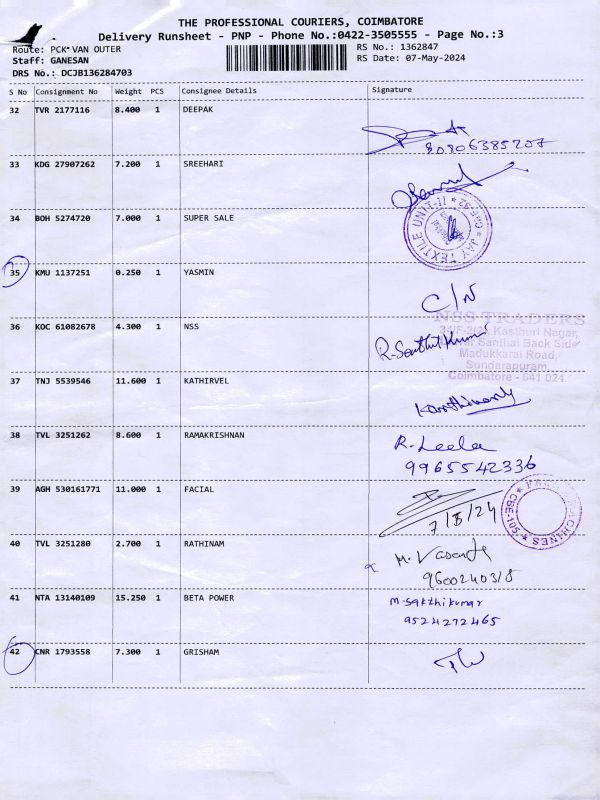 THE PROFESSIONAL COURIERS, COIMBATORE
Delivery Runsheet - PNP - Phone No.:0422-3505555 - Page No.:3
Route: PCK* VAN OUTER RS No.: 1362847
Staff: GANESAN RS Date: 07-May-2024
DRS No.: DCJB136284703
S No Consignment No Weight PCS Consignee Details Signature
32 TVR 2177116 8.400 1 DEEPAK
33 KDG 27907262 7.200 1 SREEHARI
34 BOH 5274720 7.000 1 SUPER SALE
JAY TEXTILE UNIT-II
35 KMU 1137251 0.250 1 YASMIN
C/N
36 KOC 61082678 4.300 1 NSS
NSS TRADERS
Kasthuri Nagar,
Back Side
Madukkarai Road,
Sundarapuram,
Coimbatore - 641 024.
R. Senthil Kumar
37 TNJ 5539546 11.600 1 KATHIRVEL
38 TVL 3251262 8.600 1 RAMAKRISHNAN
R. Leela
9965542336
39 AGH 530161771 11.000 1 FACIAL
7/5/24
40 TVL 3251280 2.700 1 RATHINAM
9600240318
41 NTA 13140109 15.250 1 BETA POWER
M. Sakthikumar
9524272465
42 CNR 1793558 7.300 1 GRISHAM